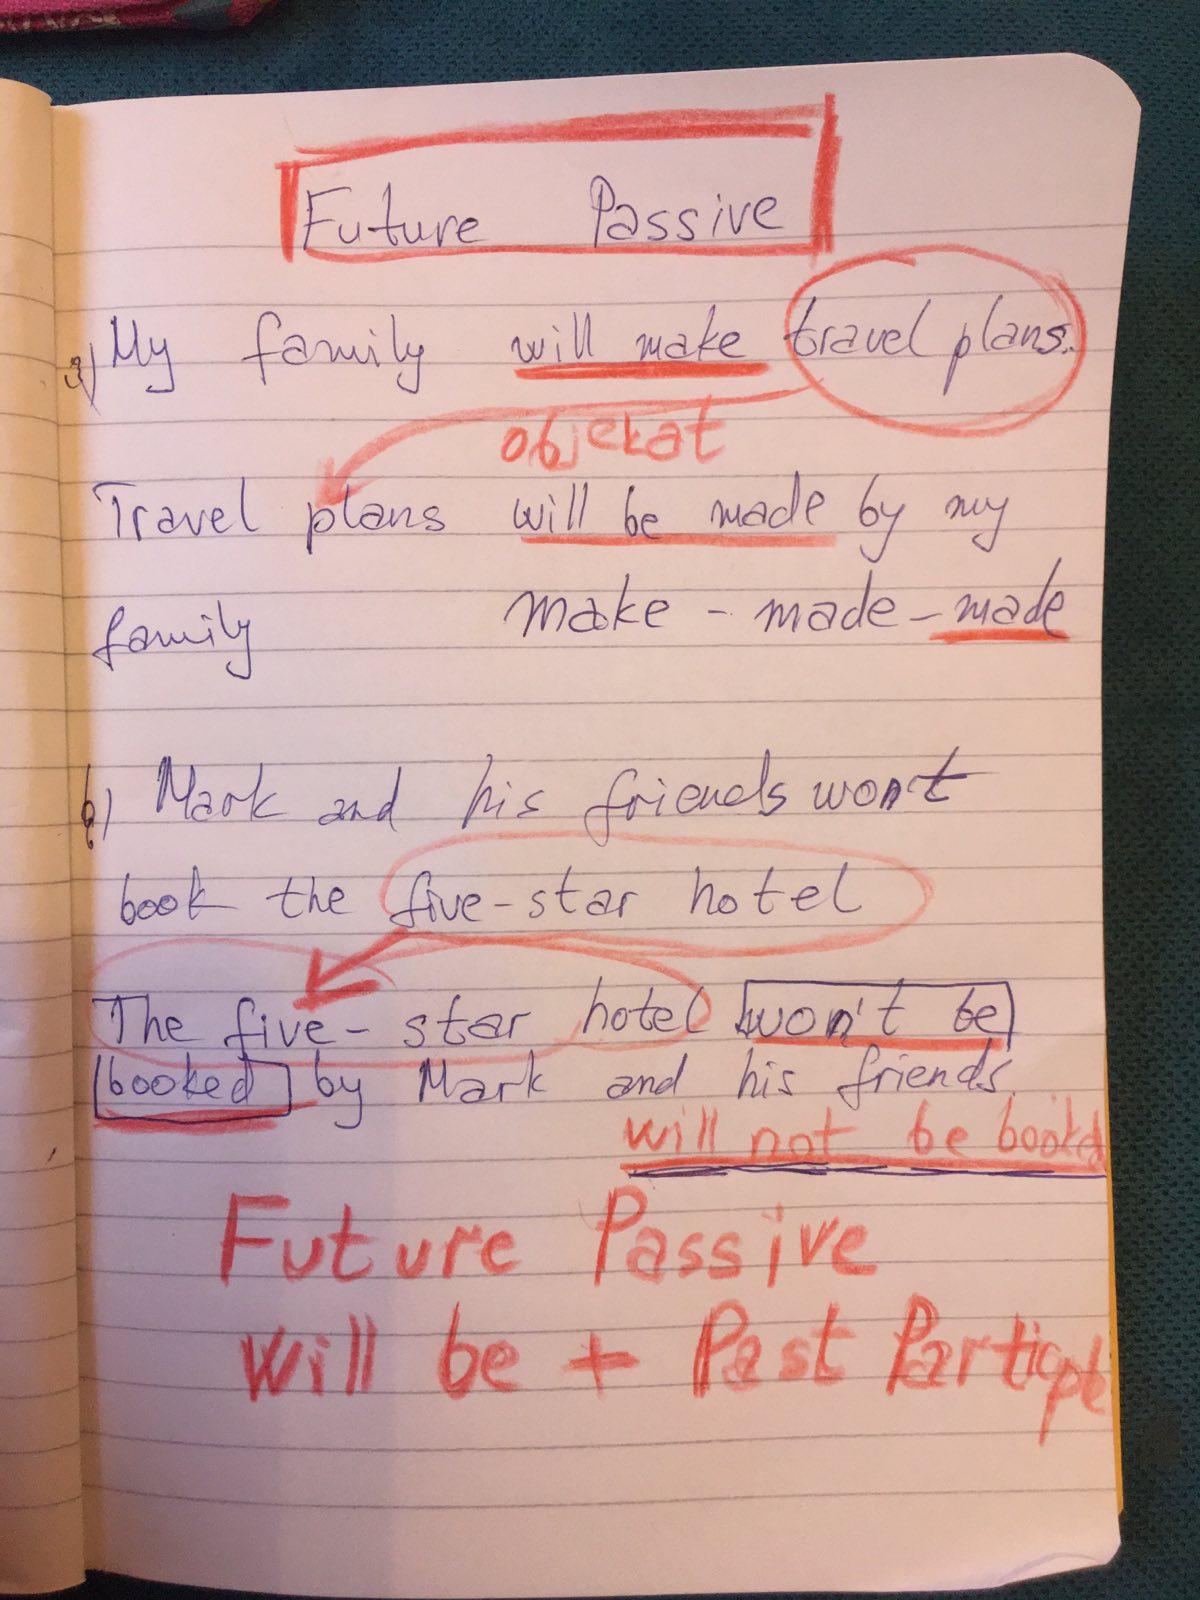 Future Passive
a) My family will make travel plans.
objekat
Travel plans will be made by my
family make - made - made
b) Mark and his friends won't
book the five-star hotel
The five-star hotel won't be
booked by Mark and his friends.
will not be booked
Future Passive
will be + Past Participle